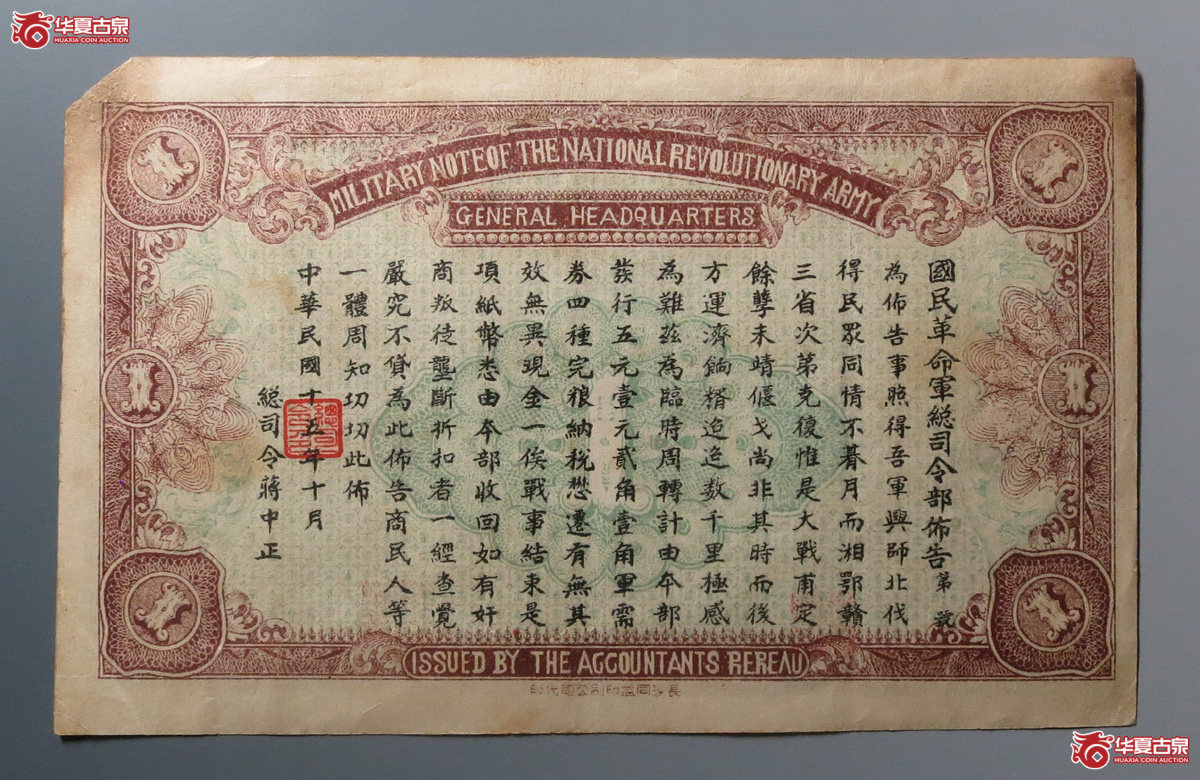 华夏古泉
HUAXIA COIN AUCTION
MILITARY NOTE OF THE NATIONAL REVOLUTIONARY ARMY
GENERAL HEADQUARTERS
1
1
國民革命軍總司令部佈告第 號
為佈告事照得吾軍興師北伐
得民眾同情不朞月而湘鄂贛
三省次第克復惟是大戰甫定
餘孽未靖偃戈尚非其時而後
方運濟餉糈迢迢数千里極感
為難茲為臨時周轉計由本部
發行五元壹元貳角壹角軍需
券四種完粮納稅懋遷有無其
效無異現金一俟戰事結束是
項紙幣悉由本部收回如有奸
商叛徒壟斷折扣者一經查覺
嚴究不貸為此佈告商民人等
一體周知切切此佈
中華民國十五年十月
總司令蔣中正
1
1
1
1
ISSUED BY THE ACCOUNTANTS REREAU
長沙同益印刷公司代印
华夏古泉
HUAXIA COIN AUCTION